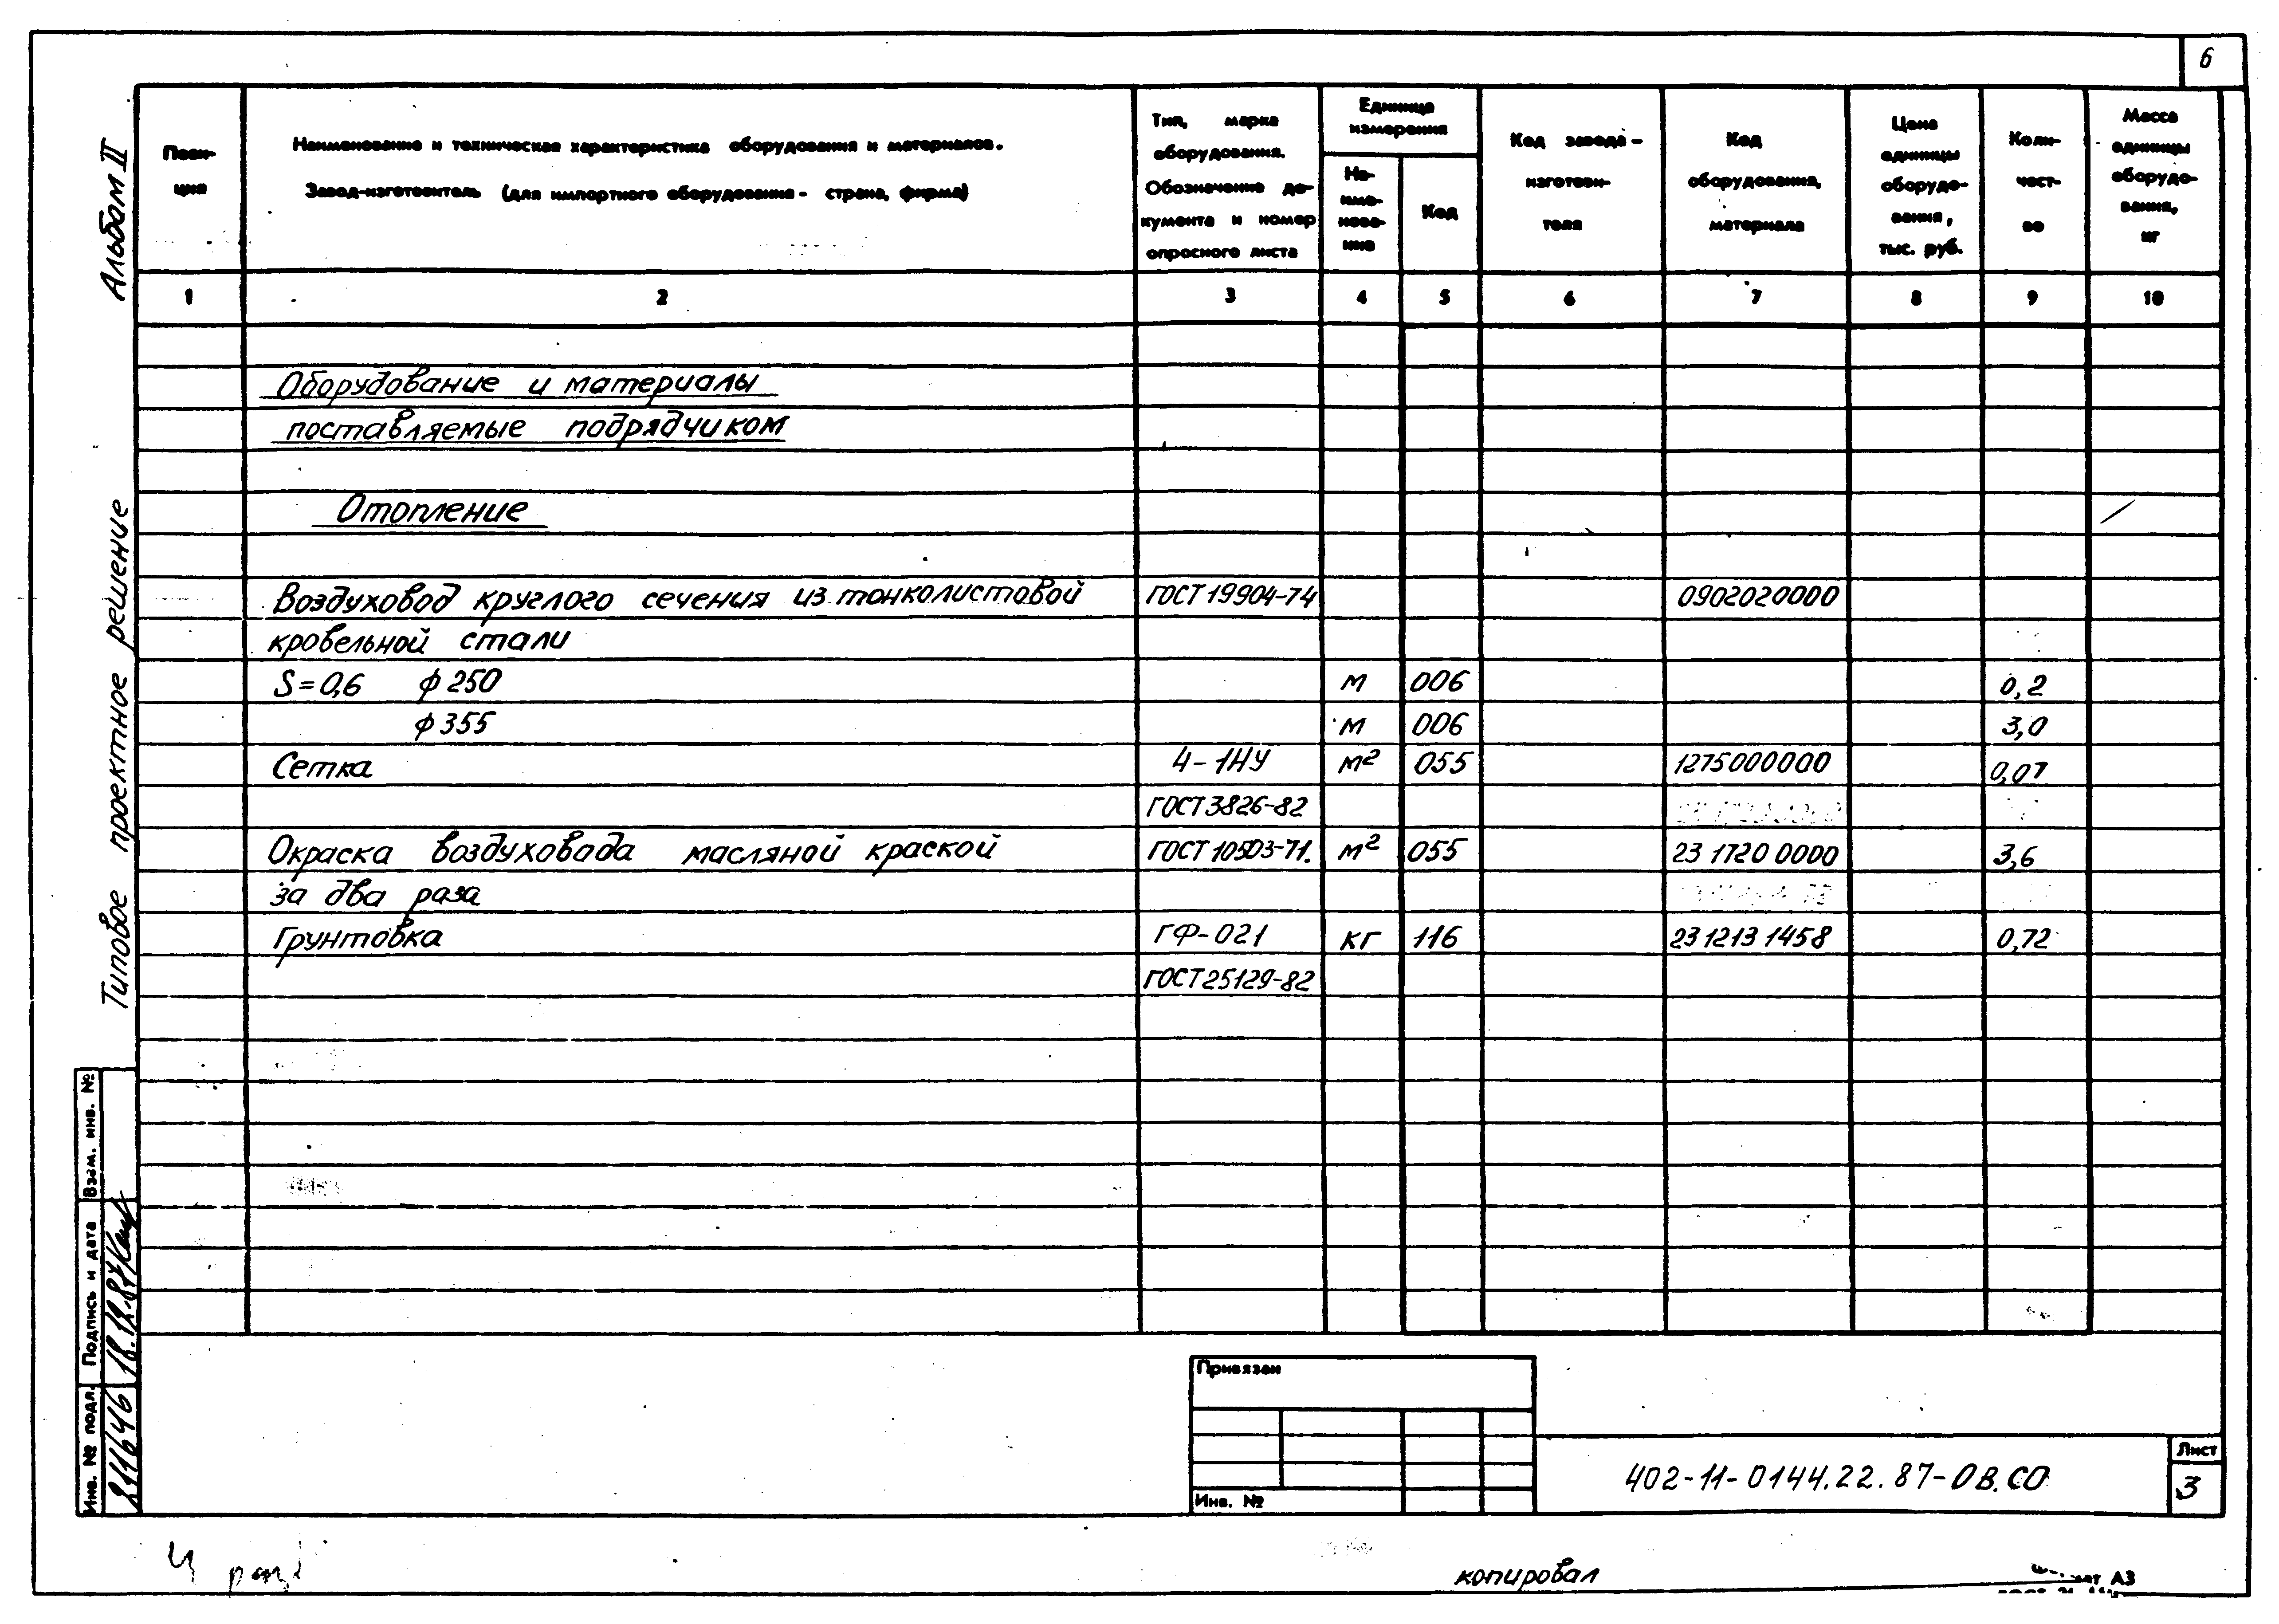 6
Альбом II
Типовое проектное решение
Пози-
ция
Наименование и техническая характеристика оборудования и материалов.
Завод-изготовитель (для импортного оборудования - страна, фирма)
Тип, марка
оборудования.
Обозначение до-
кумента и номер
опросного листа
Единица
измерения
На-
име-
нова-
ние
Код
Код завода-
изготови-
теля
Код
оборудования,
материала
Цена
единицы
оборудо-
вания,
тыс. руб.
Коли-
чест-
во
Масса
единицы
оборудо-
вания,
кг
1 2 3 4 5 6 7 8 9 10
Оборудование и материалы
поставляемые подрядчиком
Отопление
Воздуховод круглого сечения из тонколистовой ГОСТ 19904-74 0902020000
кровельной стали
S=0,6 ф250 м 006 0,2
ф355 м 006 3,0
Сетка 4-1НУ м² 055 1275000000 0,07
ГОСТ 3826-82
Окраска воздуховода масляной краской ГОСТ 10503-71. м² 055 23 1720 0000 3,6
за два раза
Грунтовка ГФ-021 кг 116 23 1213 1458 0,72
ГОСТ 25129-82
Взам. инв. №
Подпись и дата
18.12.87
Инв. № подл.
Привязан
Инв. №
402-11-0144.22.87-ОВ.СО
Лист
3
копировал
А3